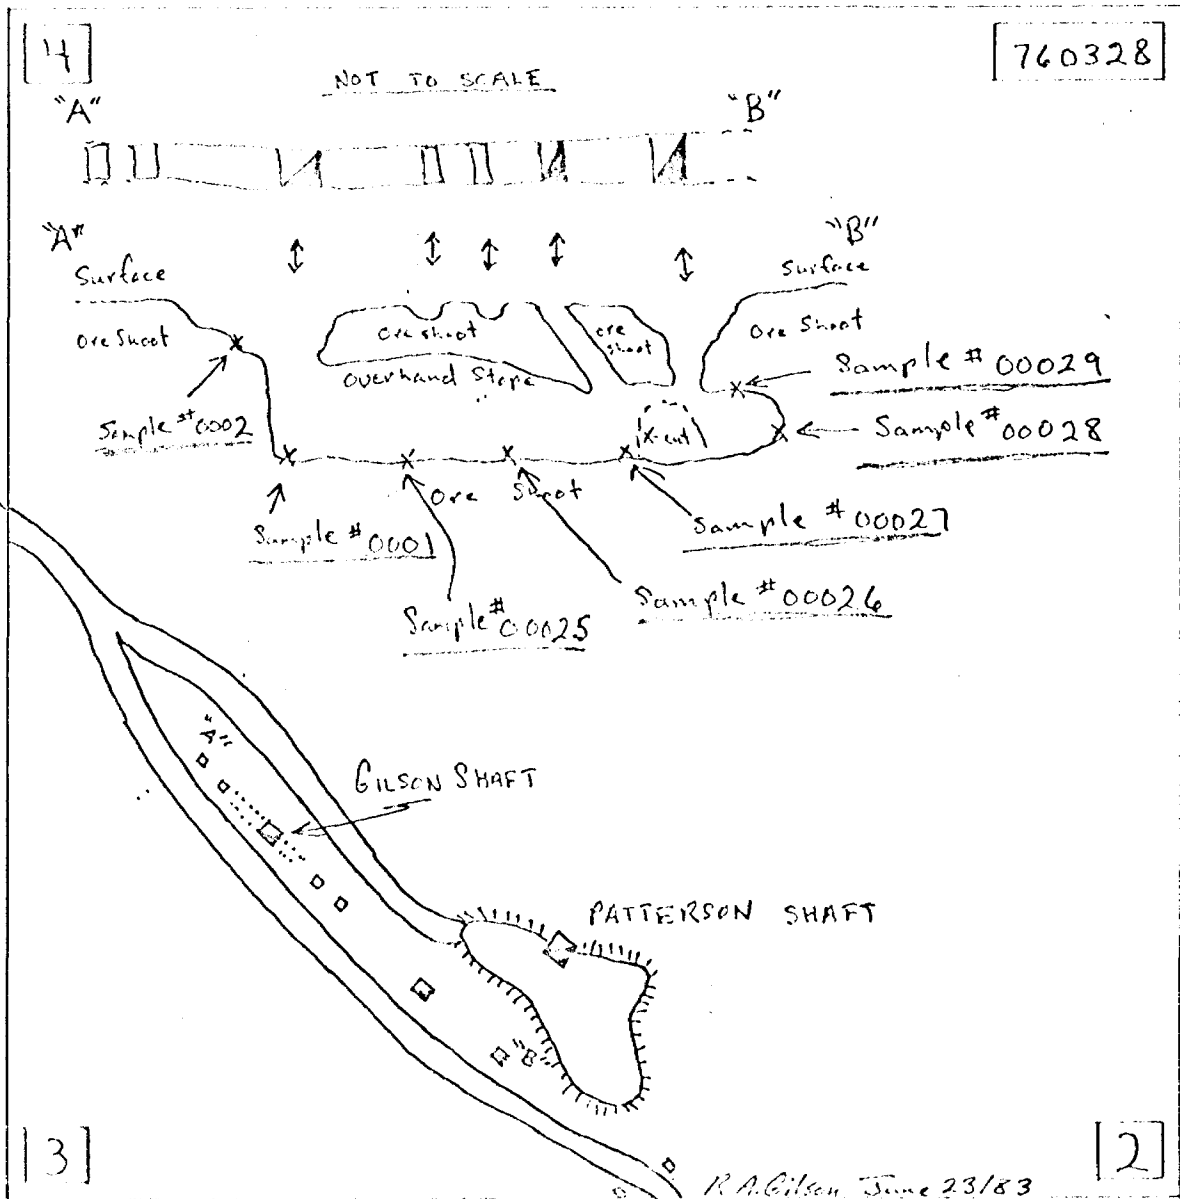 [4]
[760328]
NOT TO SCALE
"A"
"B"
"A"
"B"
Surface
Surface
Ore Shoot
Ore Shoot
Ore Shoot
ore
shoot
Overhand Stope
Sample # 00029
Sample # 0002
X-cut
Sample # 00028
Ore Shoot
Sample # 00027
Sample # 0001
Sample # 00026
Sample # 00025
"A"
GILSON SHAFT
PATTERSON SHAFT
"B"
[3]
[2]
R.A. Gilson June 23/83